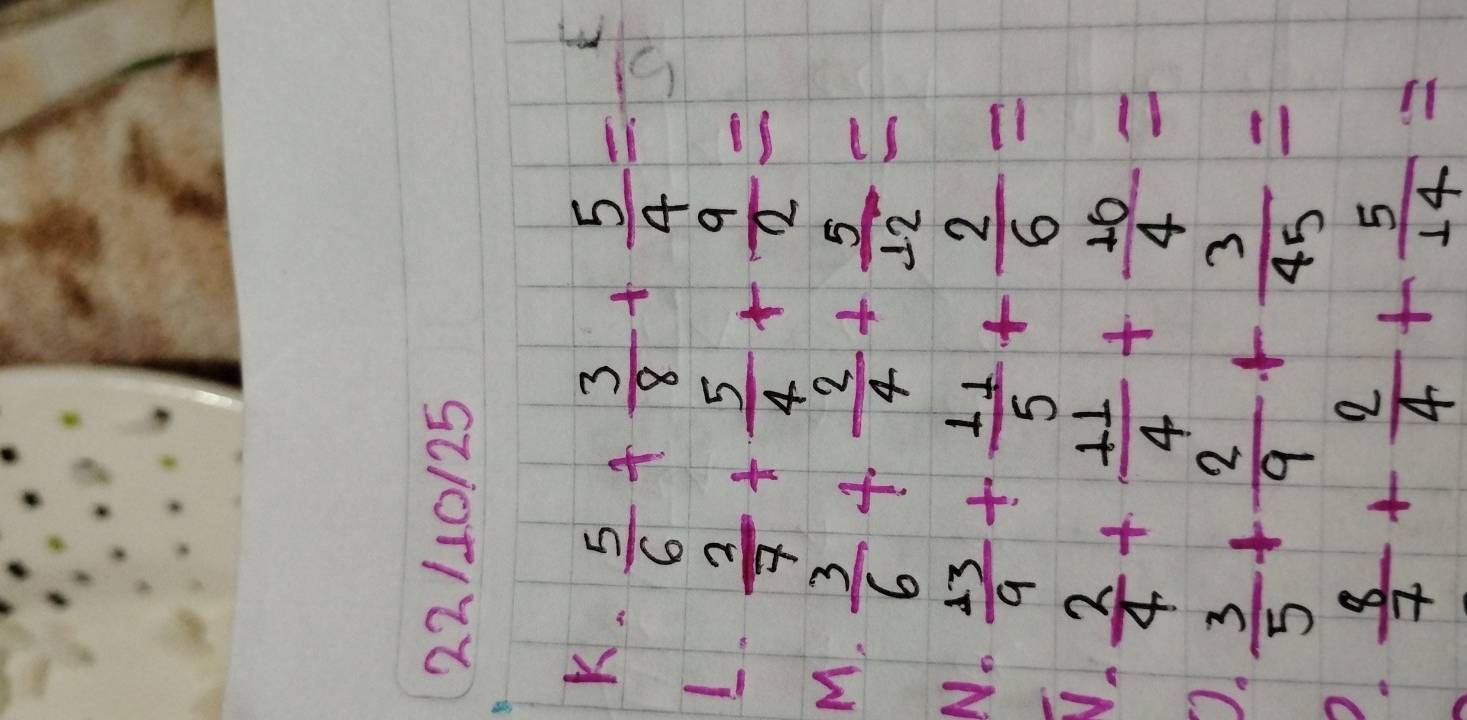 22/10/25
K. 5/6 + 3/8 + 5/4 =
L. 2/7 + 5/4 + 9/2 =
M. 3/6 + 2/4 + 5/12 =
N. 13/9 + 11/5 + 2/6 =
Ñ. 2/4 + 11/4 + 16/4 =
O. 3/5 + 2/9 + 3/45 =
P. 8/7 + 2/4 + 5/14 =